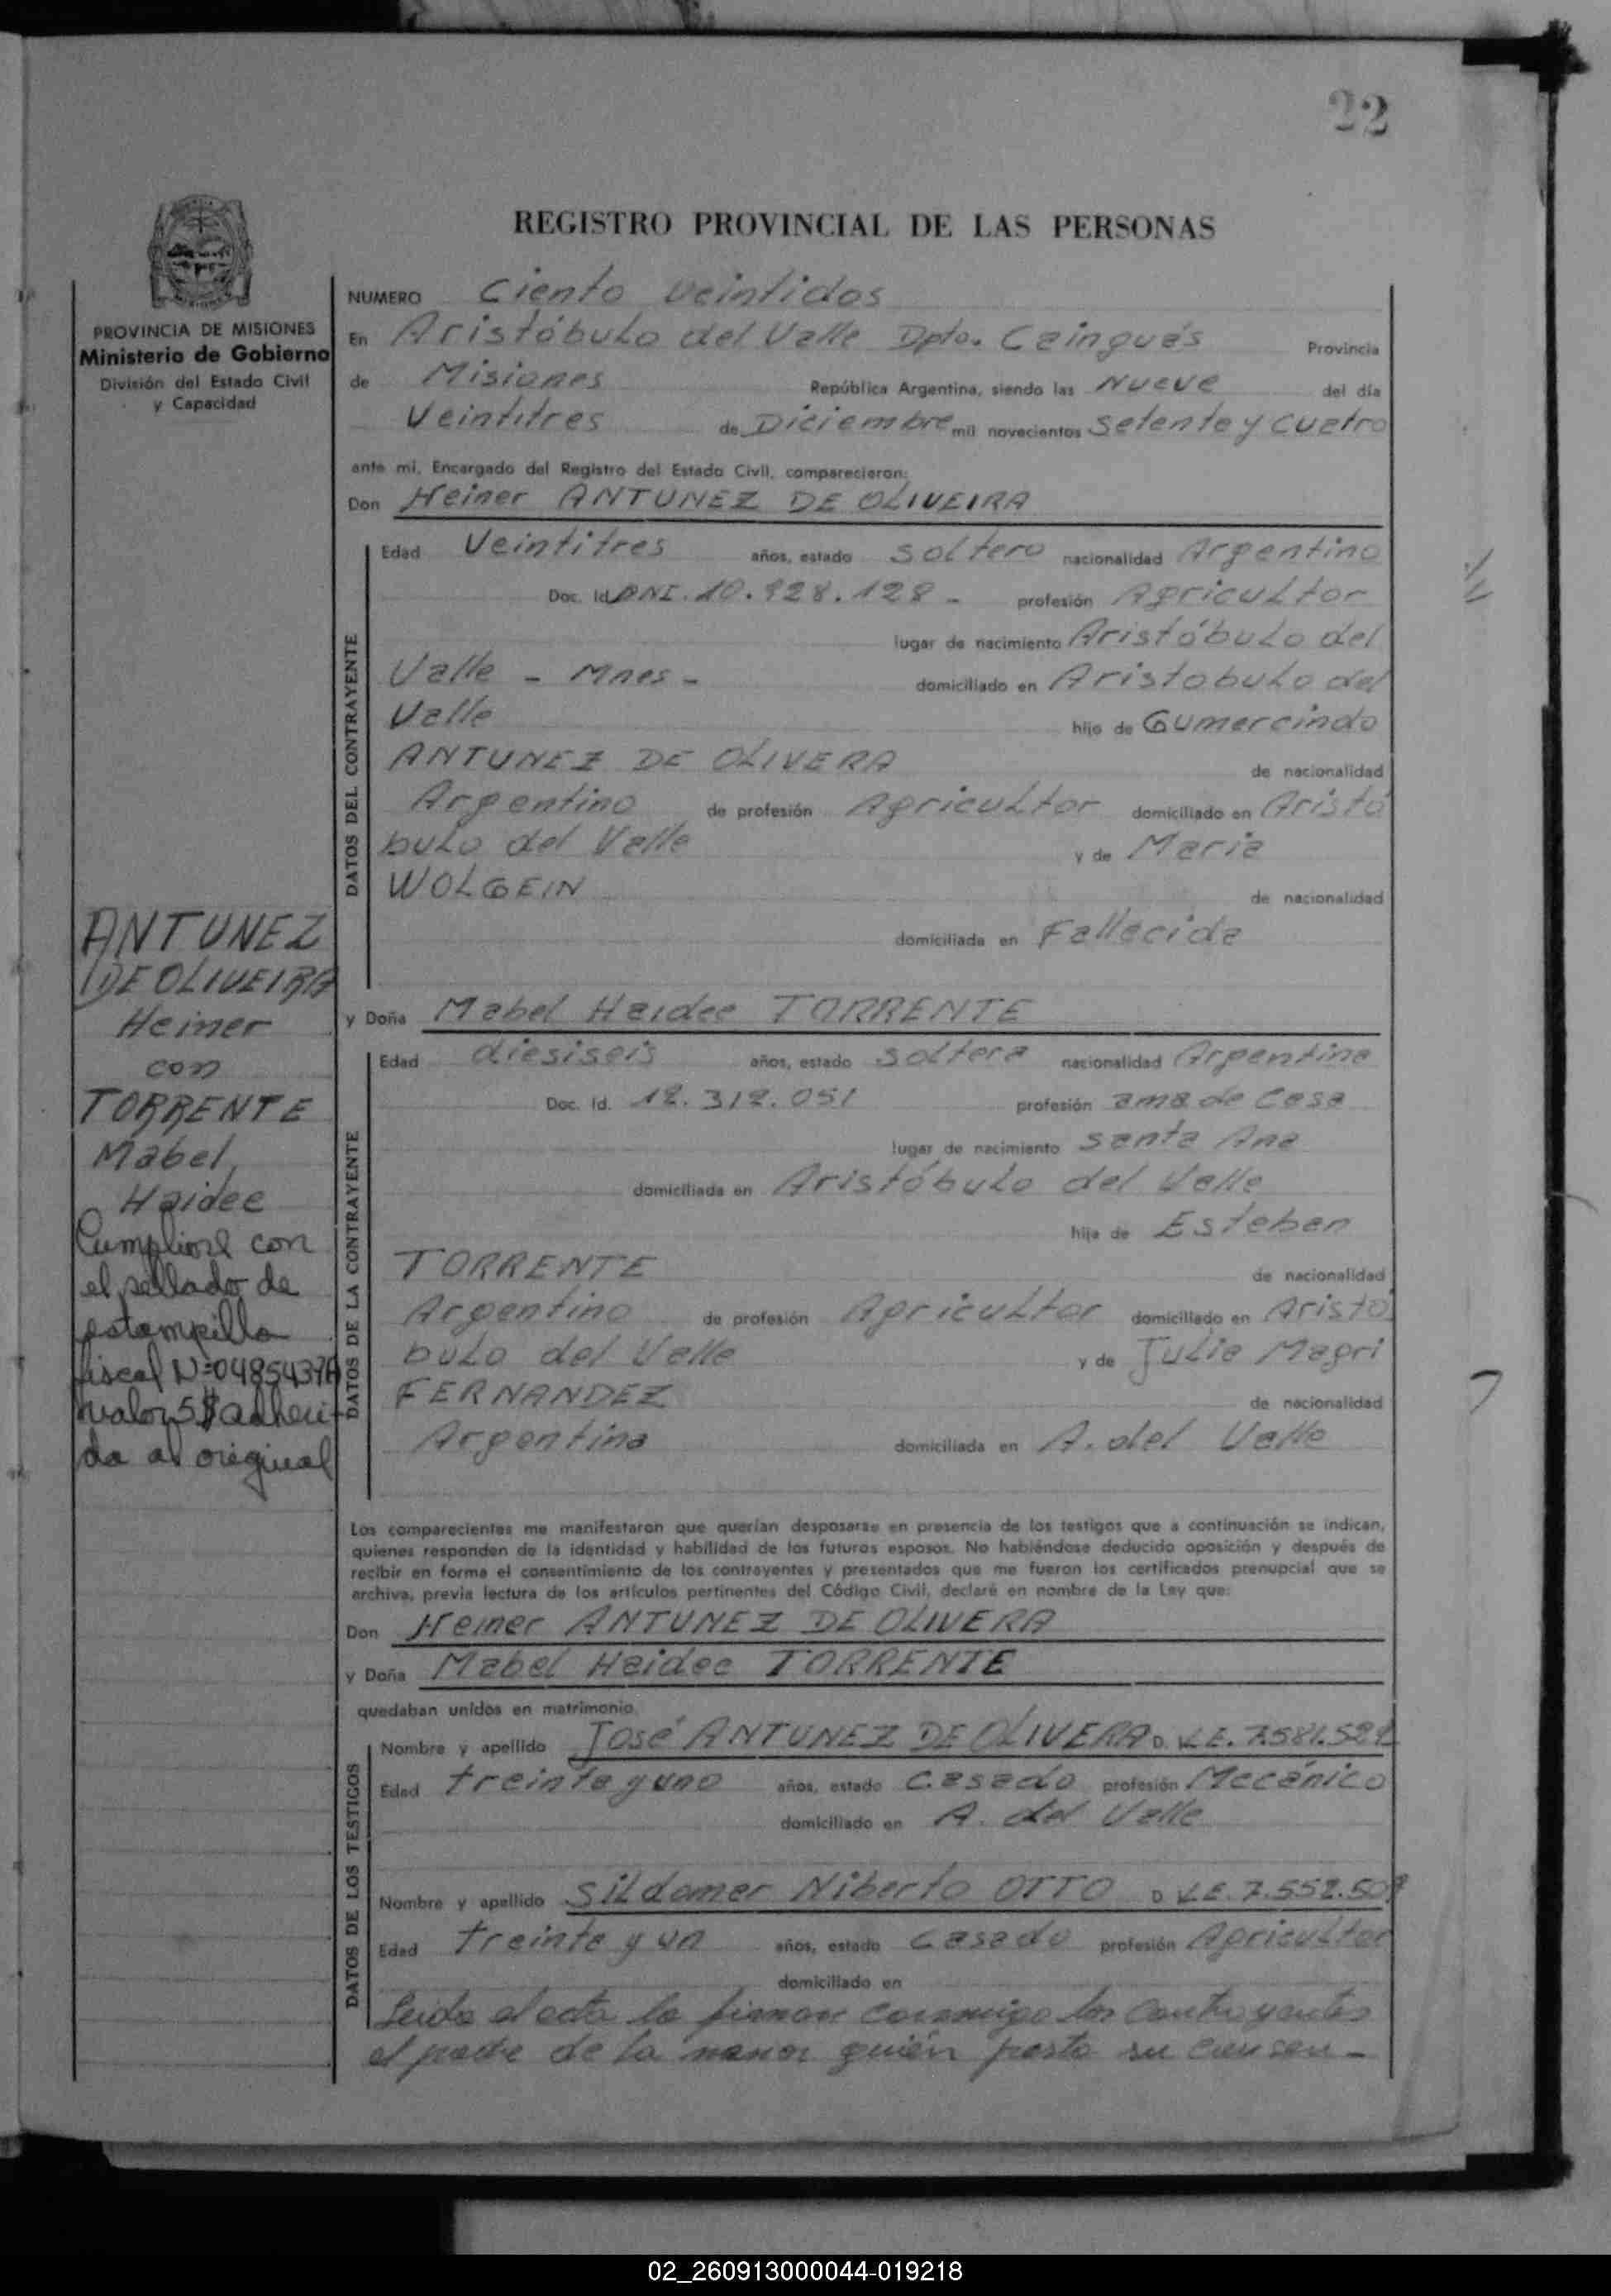 22
REGISTRO PROVINCIAL DE LAS PERSONAS
PROVINCIA DE MISIONES
Ministerio de Gobierno
División del Estado Civil
y Capacidad
NUMERO Ciento veintidos
En Aristóbulo del Valle Dpto. Cainguás Provincia
de Misiones República Argentina, siendo las Nueve del día
Veintitres de Diciembre mil novecientos Setenta y cuatro
ante mi, Encargado del Registro del Estado Civil, comparecieron:
Don Heiner ANTUNEZ DE OLIVEIRA
DATOS DEL CONTRAYENTE
Edad Veintitres años, estado soltero nacionalidad Argentino
Doc. Id. DNI. 10.928.128 - profesión Agricultor
lugar de nacimiento Aristóbulo del
Valle - Mnes - domiciliado en Aristobulo del
Valle hijo de Gumercindo
ANTUNEZ DE OLIVERA de nacionalidad
Argentino de profesión Agricultor domiciliado en Aristó
bulo del Valle y de Maria
WOLGEIN de nacionalidad
domiciliada en Fallecida
ANTUNEZ
DE OLIVEIRA
Heiner
con
TORRENTE
Mabel,
Haidee
Cumpliose con
el sellado de
estampilla
fiscal N=0485437A
valor 5$ adheri-
da al original
y Doña Mabel Haidee TORRENTE
DATOS DE LA CONTRAYENTE
Edad diesiseis años, estado soltera nacionalidad Argentina
Doc. Id. 12.312.051 profesión ama de Casa
lugar de nacimiento Santa Ana
domiciliada en Aristóbulo del Valle
hija de Esteban
TORRENTE de nacionalidad
Argentino de profesión Agricultor domiciliado en Aristó
bulo del Valle y de Julia Magri
FERNANDEZ de nacionalidad
Argentina domiciliada en A. del Valle
Los comparecientes me manifestaron que querían desposarse en presencia de los testigos que a continuación se indican,
quienes responden de la identidad y habilidad de los futuros esposos. No habiéndose deducido oposición y después de
recibir en forma el consentimiento de los contrayentes y presentados que me fueron los certificados prenupcial que se
archiva, previa lectura de los artículos pertinentes del Código Civil, declaré en nombre de la Ley que:
Don Heiner ANTUNEZ DE OLIVERA
y Doña Mabel Haidee TORRENTE
quedaban unidos en matrimonio.
DATOS DE LOS TESTIGOS
Nombre y apellido José ANTUNEZ DE OLIVERA D. L.E. 7.581.521
Edad treinta y uno años, estado Casado profesión Mecánico
domiciliado en A. del Valle
Nombre y apellido Sildomar Niberto OTTO D L.E. 7.552.509
Edad treinta y un años, estado Casado profesión Agricultor
domiciliado en
Leida el acta la firman conmigo los contrayentes
el padre de la menor quién presta su consen-
02_260913000044-019218